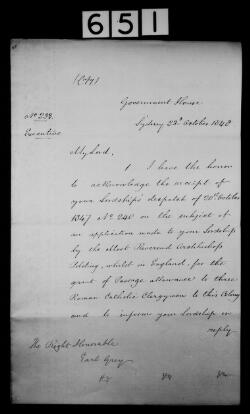 651
(Copy)
Government House
Sydney 23d October 1848
No 233.
Executive
My Lord,
1. I have the honor
to acknowledge the receipt of
your Lordship's despatch of 20th October
1847 No 240 on the subject of
an application made to your Lordship
by the Most Reverend Archbishop
Polding, whilst in England, for the
grant of Passage allowance to three
Roman Catholic Clergymen to this Colony
and to inform your Lordship in
reply
The Right Honorable
Earl Grey